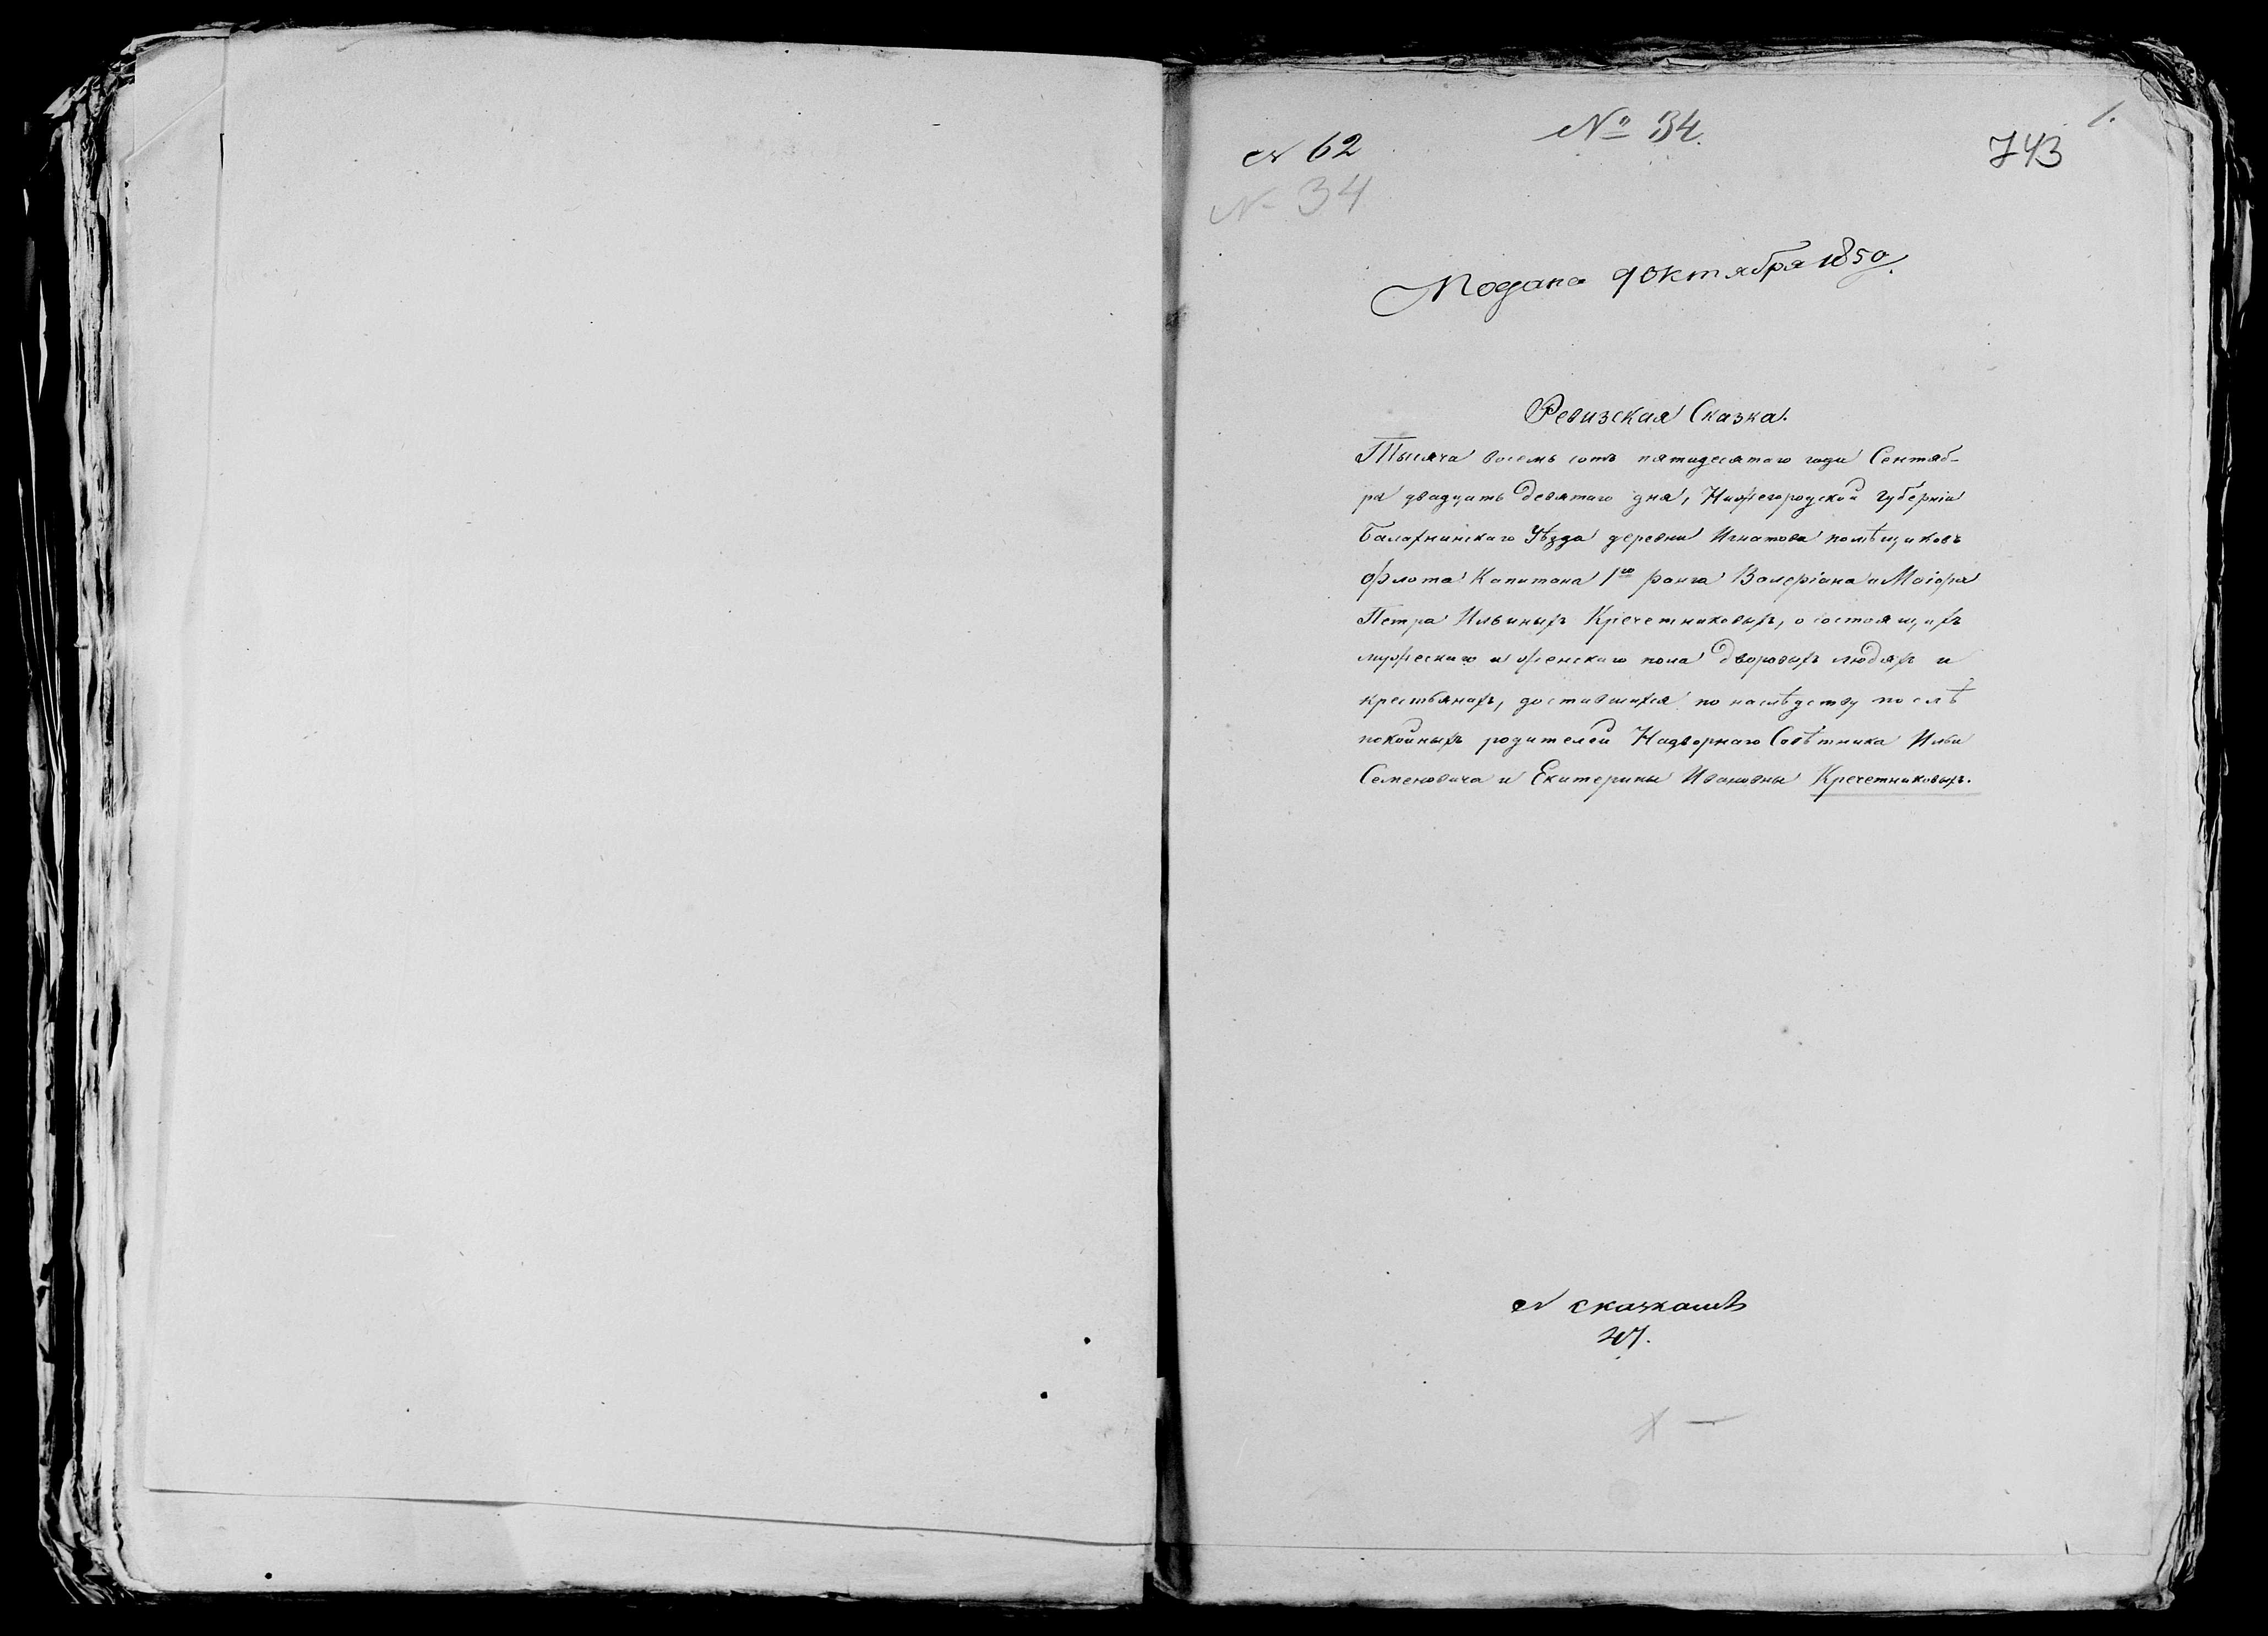 № 34.
1.
743
№ 62
№ 34
Подана 9 Октября 1850
Ревизская Сказка.
Тысяча восемь сотъ пятидесятого года Сентяб-
ря двадцать девятаго дня, Нижегородской Губерніи
Балахнинскаго Уѣзда деревни Игнатова помѣщиковъ
Флота Капитана 1го ранга Валеріана и Маіора
Петра Ильиныхъ Кречетниковыхъ, о состоящихъ
мужескаго и женскаго пола дворовыхъ людяхъ и
крестьянахъ, доставшихся по наслѣдству послѣ
покойныхъ родителей Надворнаго Совѣтника Ильи
Семеновича и Екатерины Ивановны Кречетниковыхъ.